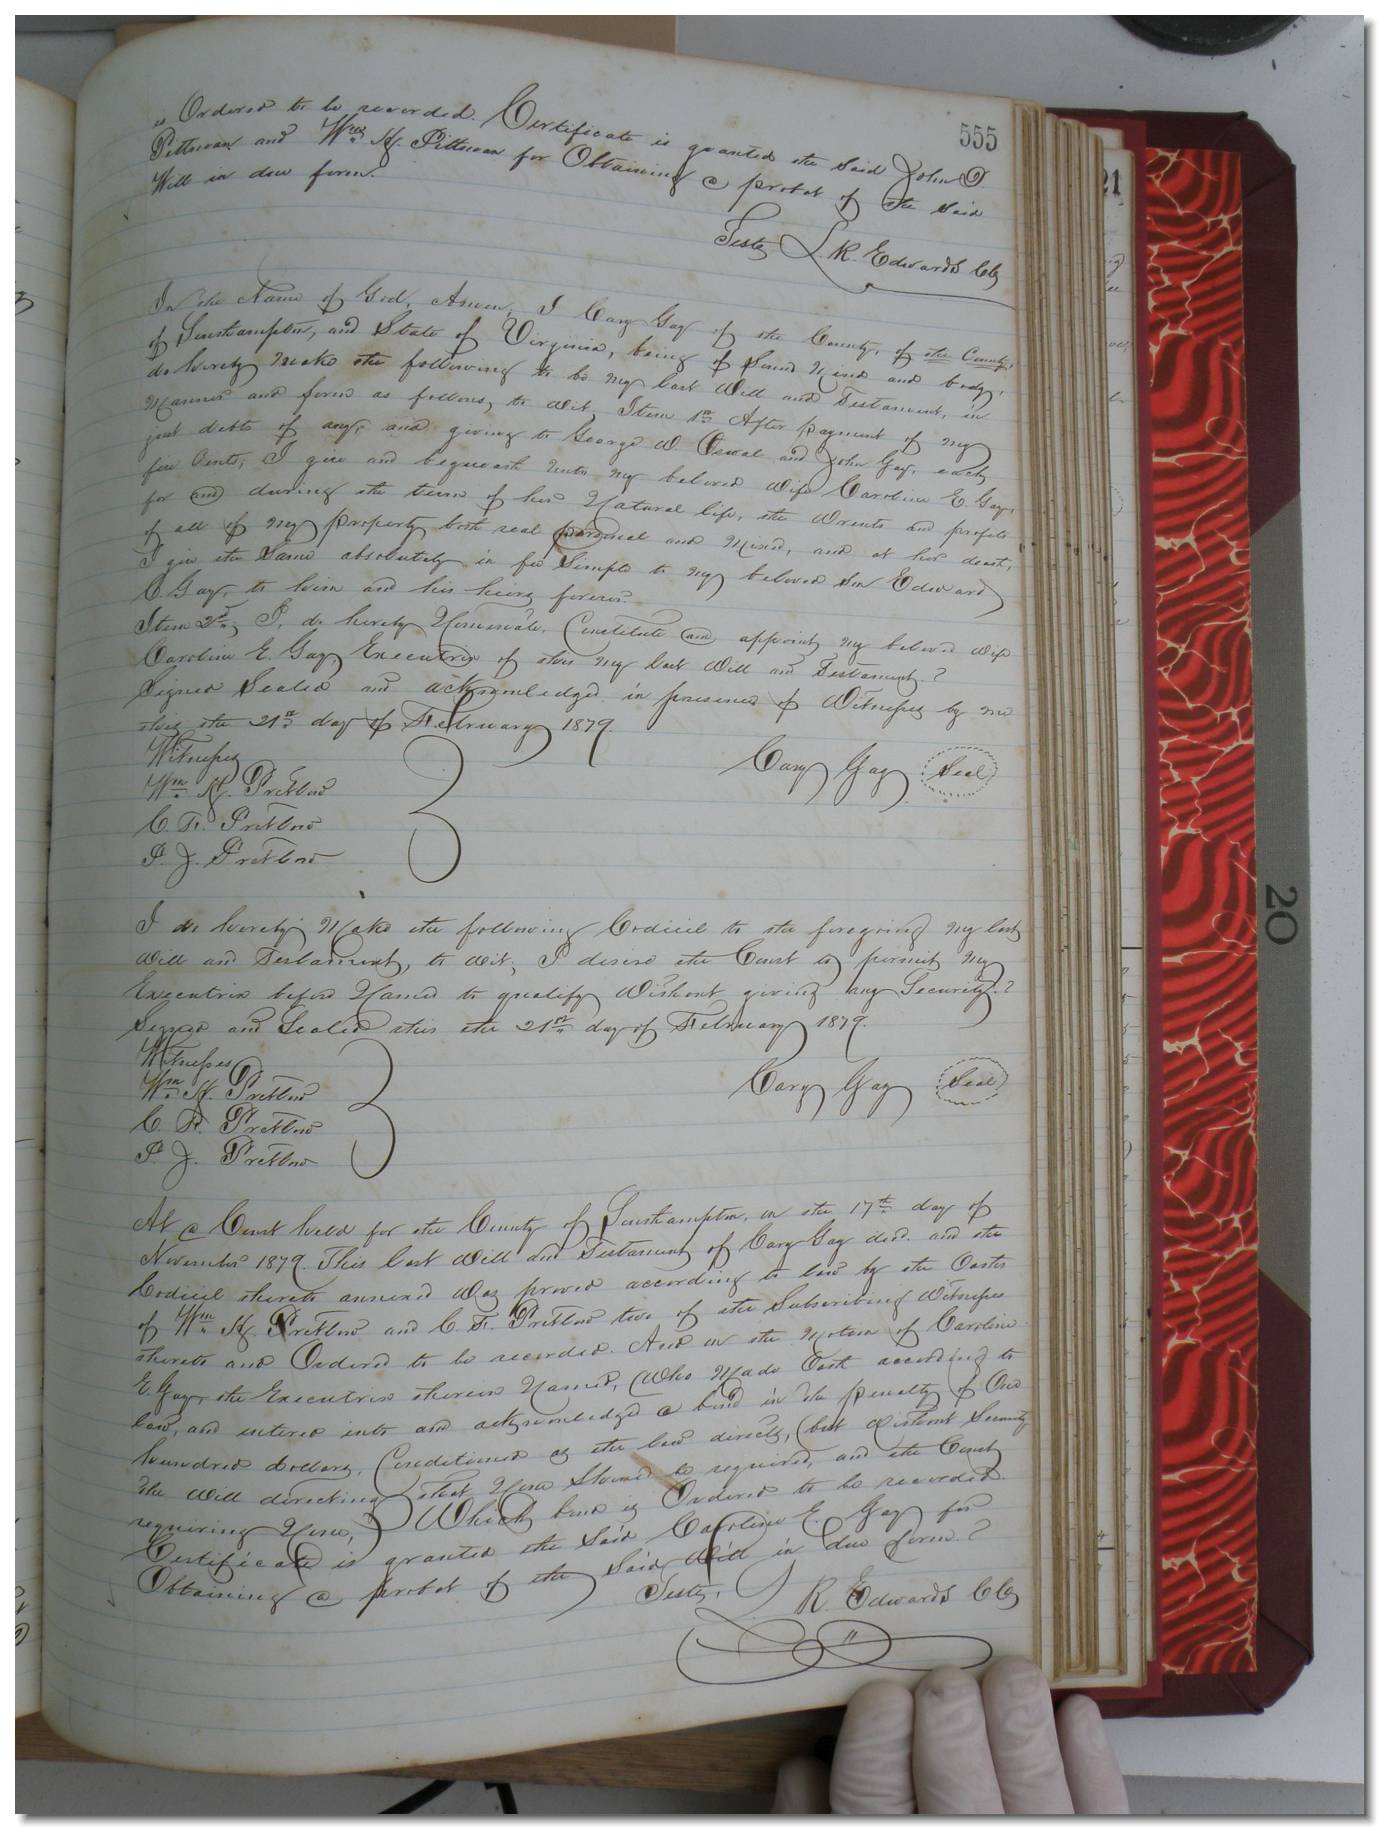 555
is Ordered to be recorded. Certificate is granted the said John D.
Pittman and Wm H. Pittman for Obtaining a probat of the said
Will in due form.
Teste L. R. Edwards Clk
In the Name of God, Amen, I Cary Gay of the County, of the County,
of Southampton, and State of Virginia, being of sound mind and body,
do hereby make the following to be my last Will and Testament, in
manner and form as follows, to wit, Item 1st After payment of my
just debts if any, and giving to George W. and John Gay, each
five Cents, I give and bequeath unto my beloved wife Caroline E. Gay,
for and during the term of her Natural life, the wrents and profits
of all of my property both real personal and mixed, and at her death,
I give the same absolutely in fee Simple to my beloved son Edward
C. Gay, to him and his heirs forever.
Item 2nd, I, do hereby Nominate, Constitute and appoint my beloved wife
Caroline E. Gay, Executrix of this my last Will and Testament.
Signed Sealed and acknowledged in presence of Witnesses by me
this the 21st day of February 1879.
Witnesses
Cary Gay Seal
Wm H. Pretlow
C. F. Pretlow
P. J. Pretlow
I do hereby make the following Codicil to the foregoing my last
Will and Testament, to wit, I desire the Court to permit my
Executrix before Named to qualify without giving any Security.
Signed and Sealed this the 21st day of February 1879.
Witnesses
Cary Gay Seal
Wm H. Pretlow
C. F. Pretlow
P. J. Pretlow
At a Court held for the County of Southampton, on the 17th day of
November 1879. This last Will and Testament of Cary Gay decd. and the
Codicil thereto annexed was proved according to law by the Oaths
of Wm H. Pretlow and C. F. Pretlow two of the Subscribing Witnesses
thereto and Ordered to be recorded. And on the Motion of Caroline
E. Gay, the Executrix therein Named, (Who Made Oath according to
law, and entered into and acknowledged a bond in the penalty of One
hundred dollars, Conditioned as the law directs, (but without Security
the Will directing that None Should be required, and the Court
requiring None,) Which bond is Ordered to be recorded.
Certificate is granted the Said Caroline E. Gay for
Obtaining a probat of the Said Will in due form.
Teste, L R. Edwards Clk
21
20